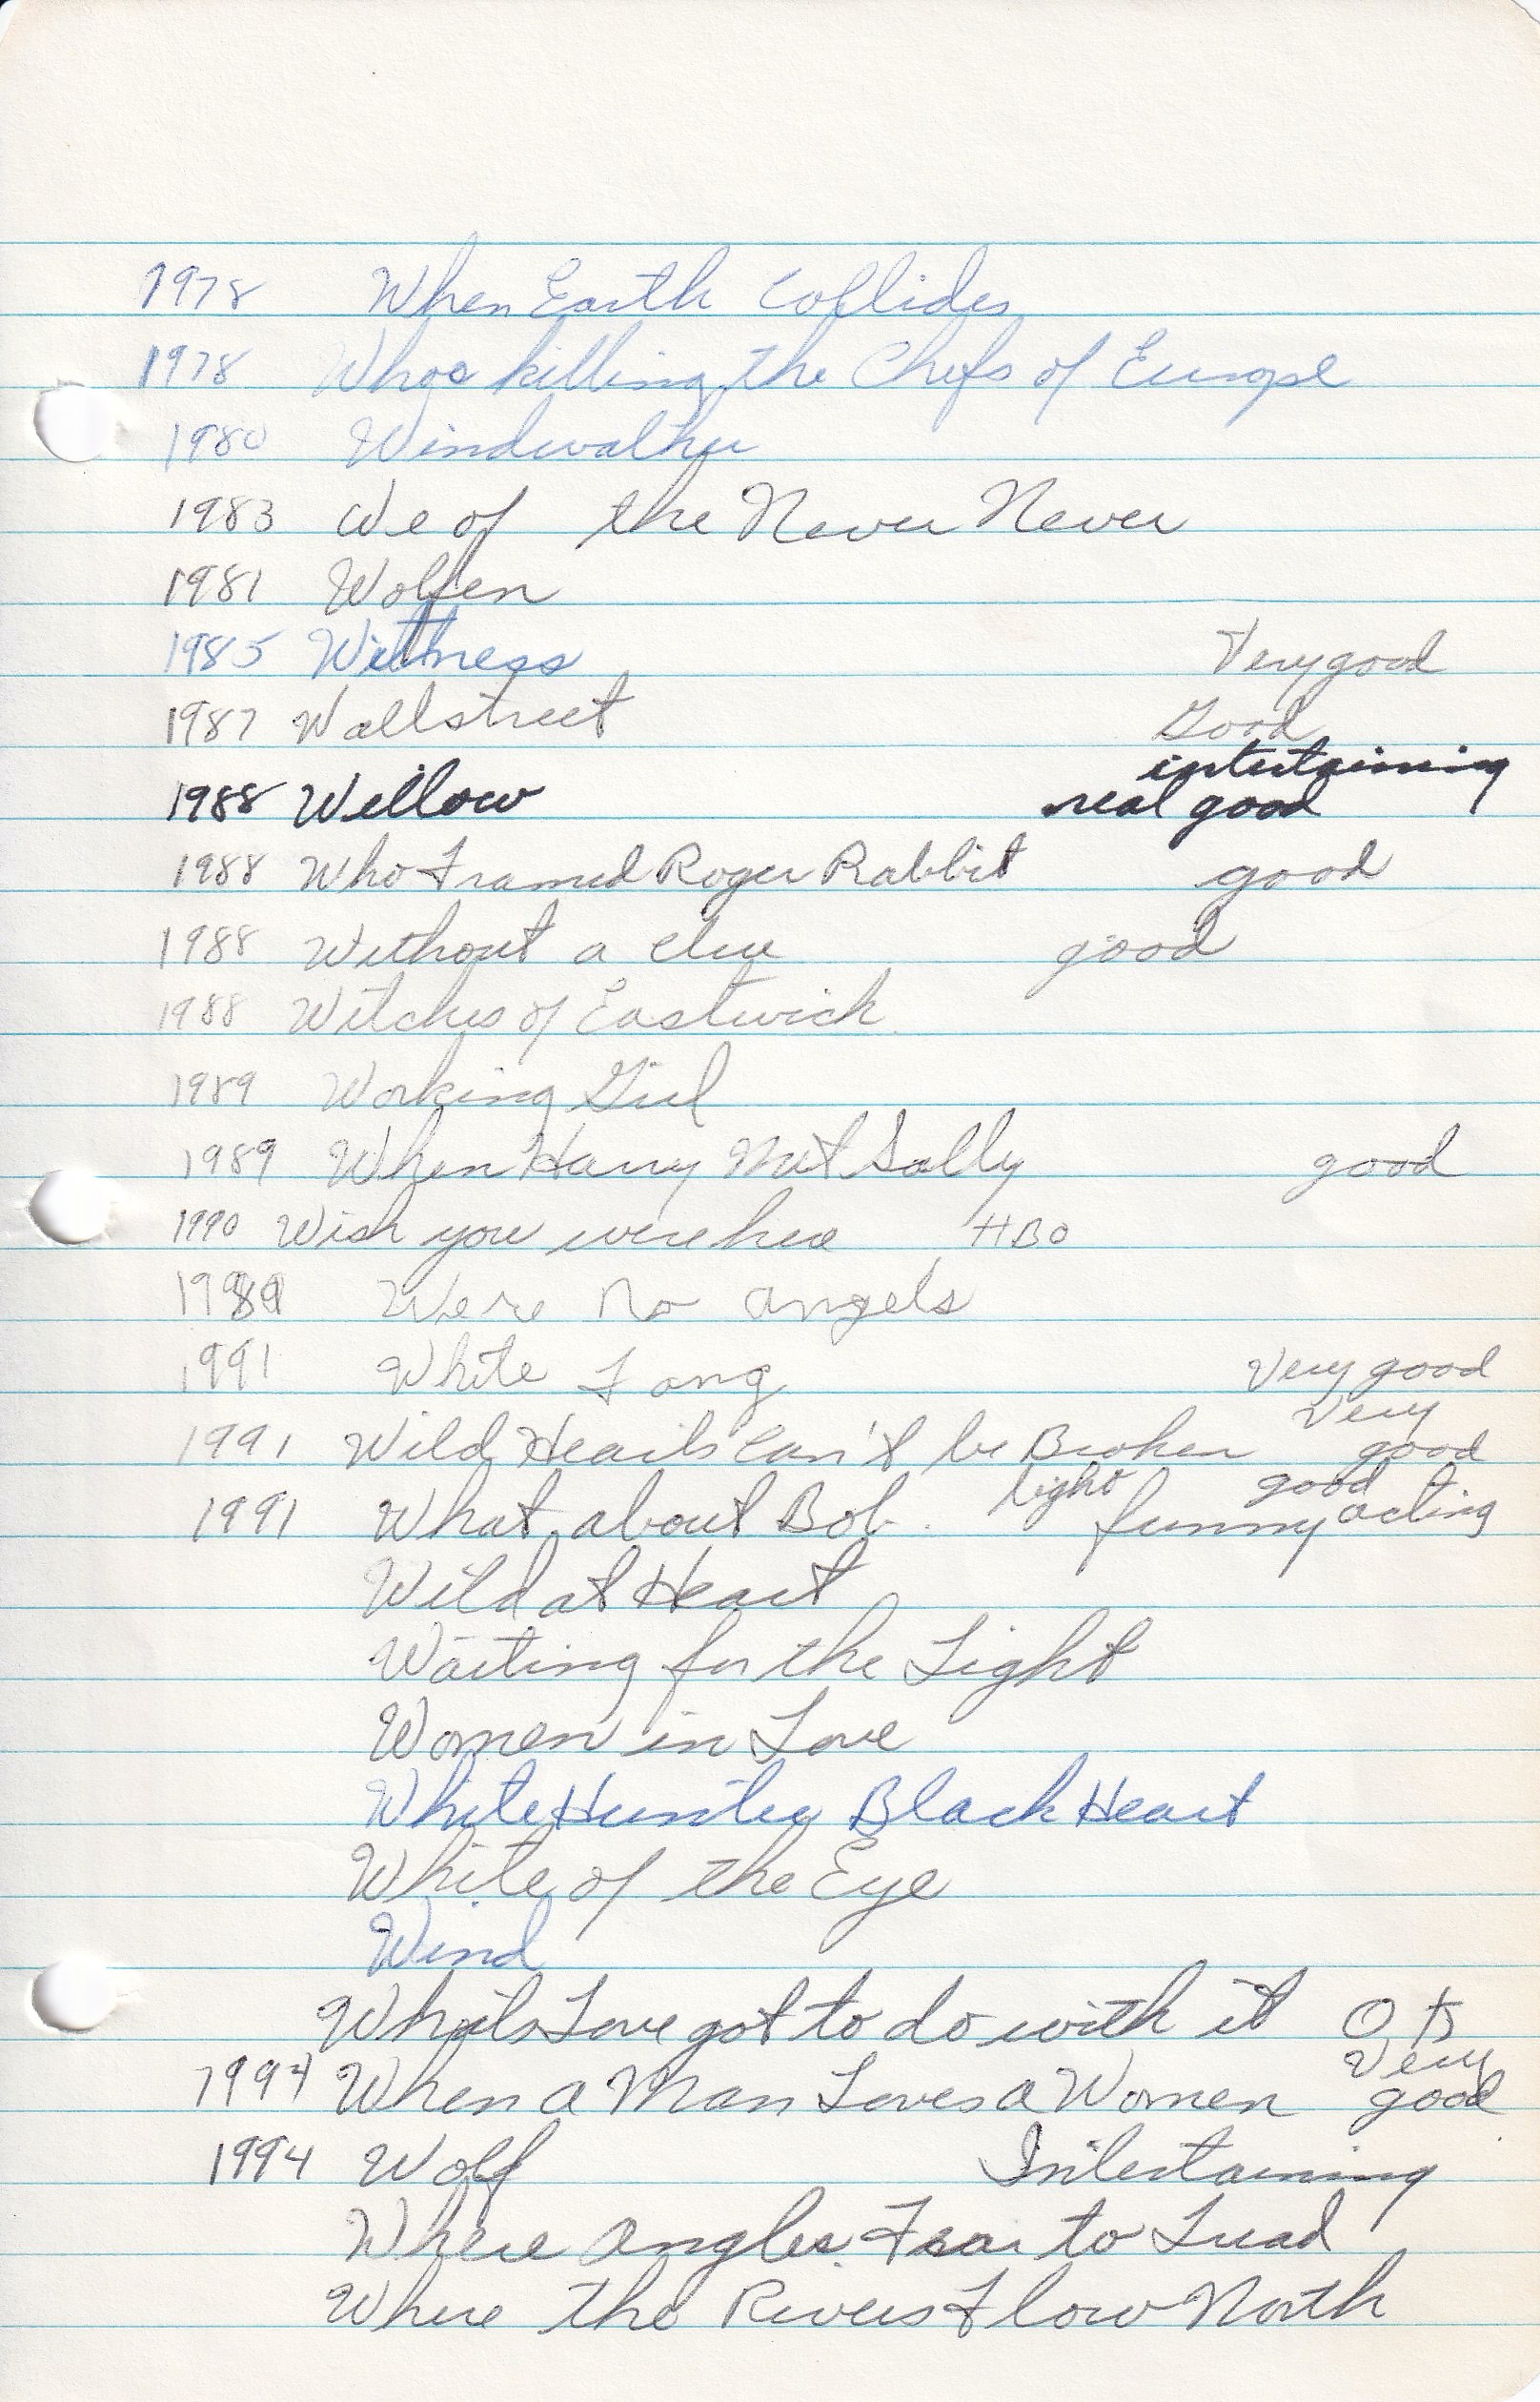 1978 When Earth Collides
1978 Whos killing the Chefs of Europe
1980 Windwalker
1983 We of the Never Never
1981 Wolfen
1985 Wittness Very good
1987 Wallstreet Good
intertaining
1988 Willow real good
1988 Who Framed Roger Rabbit good
1988 Without a clue good
1988 Witches of Eastwick
1989 Working Girl
1989 When Harry Met Sally good
1990 Wish you were here HBO
1989 We're No angels
1991 White Fang Very good
Very
1991 Wild Hearts can't be Broken good
light good
1991 What about Bob. funny acting
Wild at Heart
Waiting for the Light
Women in Love
White Hunter Black Heart
White of the Eye
Wind
Whats Love got to do with it OK
Very
1994 When a Man Loves a Women good
1994 Wolf Intertaining
Where angles Fear to Tread
Where the Rivers Flow North